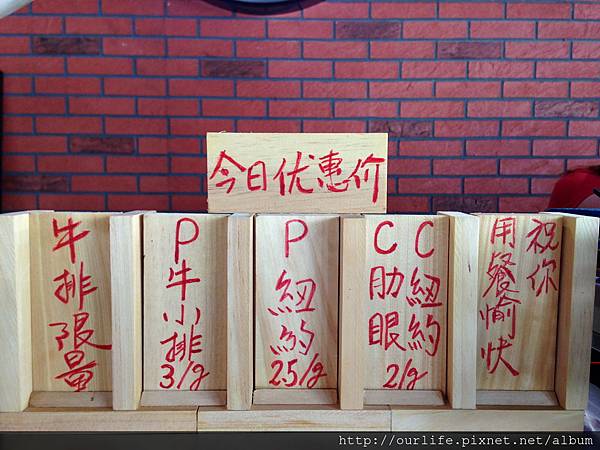 今日优惠价
牛排限量
P牛小排
3/g
P紐約
25/g
C紐約
C肋眼
2/g
祝你
用餐愉快
http://ourlife.pixnet.net/album